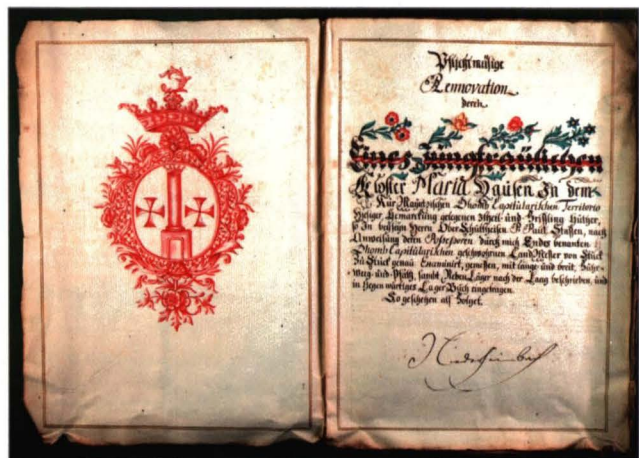 Pflichtmäsige
Rennovation
deren
Eines Jungfräulichen
Kloster Maria Hausen In dem
Kur Maynzischen Dhomb Capitularischen Territorio
hiesiger Gemarckung gelegenen Theil- und Güther,
so In beysein Herrn Ober Schultheisen P. Paul nach
Anweisung deren durch mich Endes benanden
Dhomb Capitularischen geschwohrnen Land Messer von Stück
Zu Stück genau Examinirt, gemessen, mit länge- und breit,
Weeg- und sambt Neben Läger nach der Lang beschrieben, und
in gegen wärtiges Lager Buch eingetragen.
So geschehen als folget.